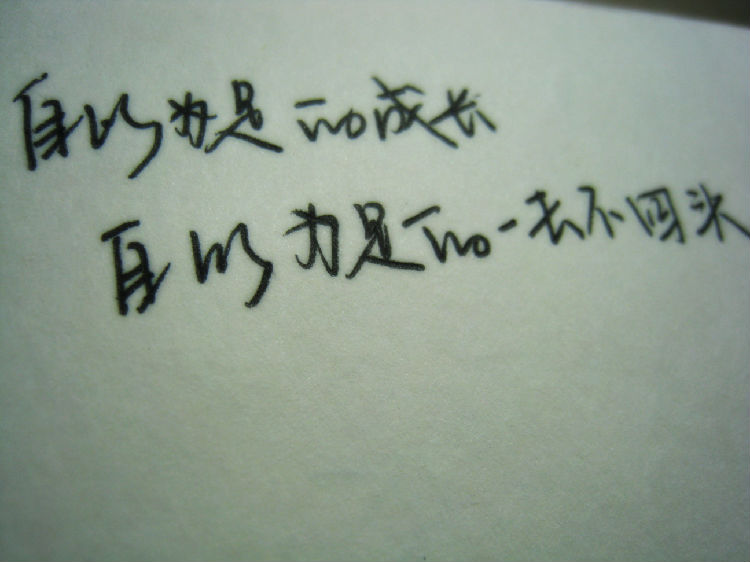 自以为是的成长
自以为是的一去不回头